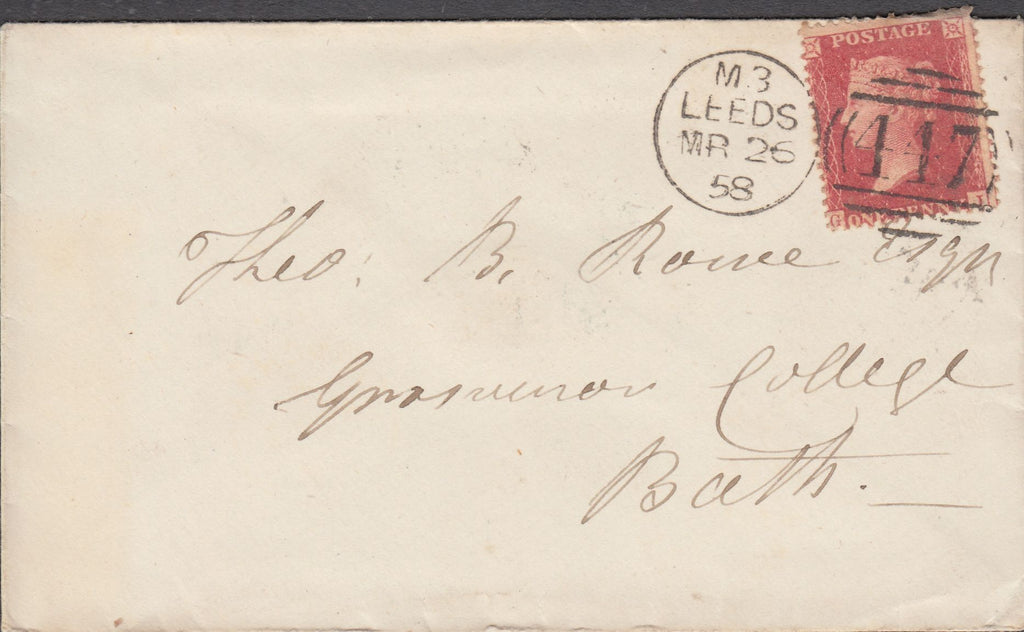 POSTAGE
M 3
LEEDS
MR 26
58
447
G ONE PENNY J
Theo. B. Rowe Esqr
Grosvenor College
Bath.